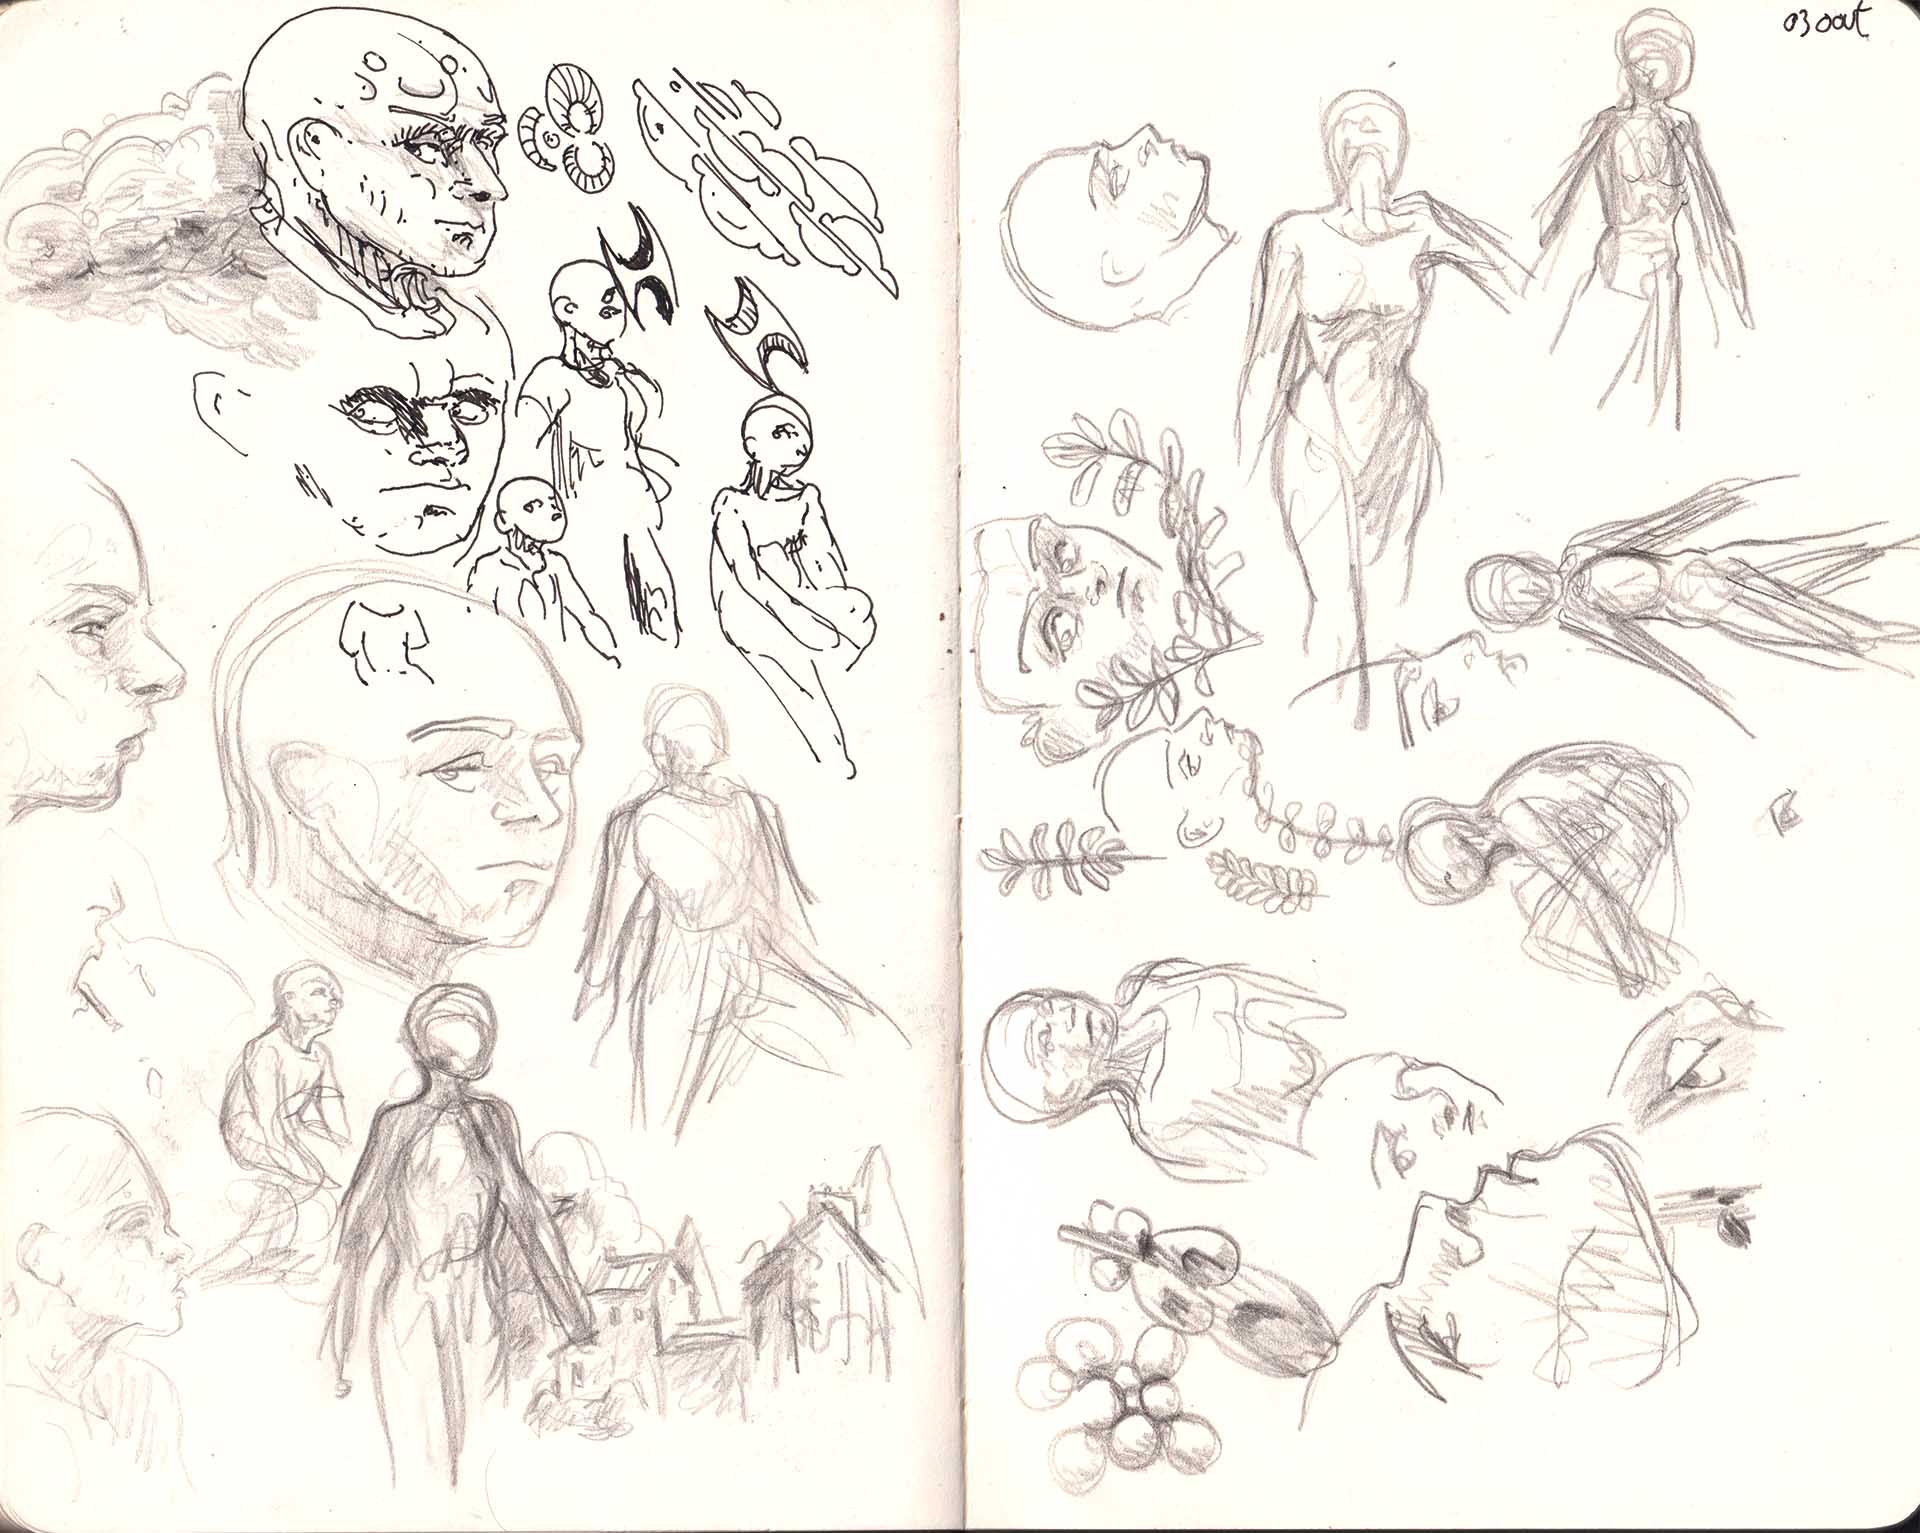 03 aout